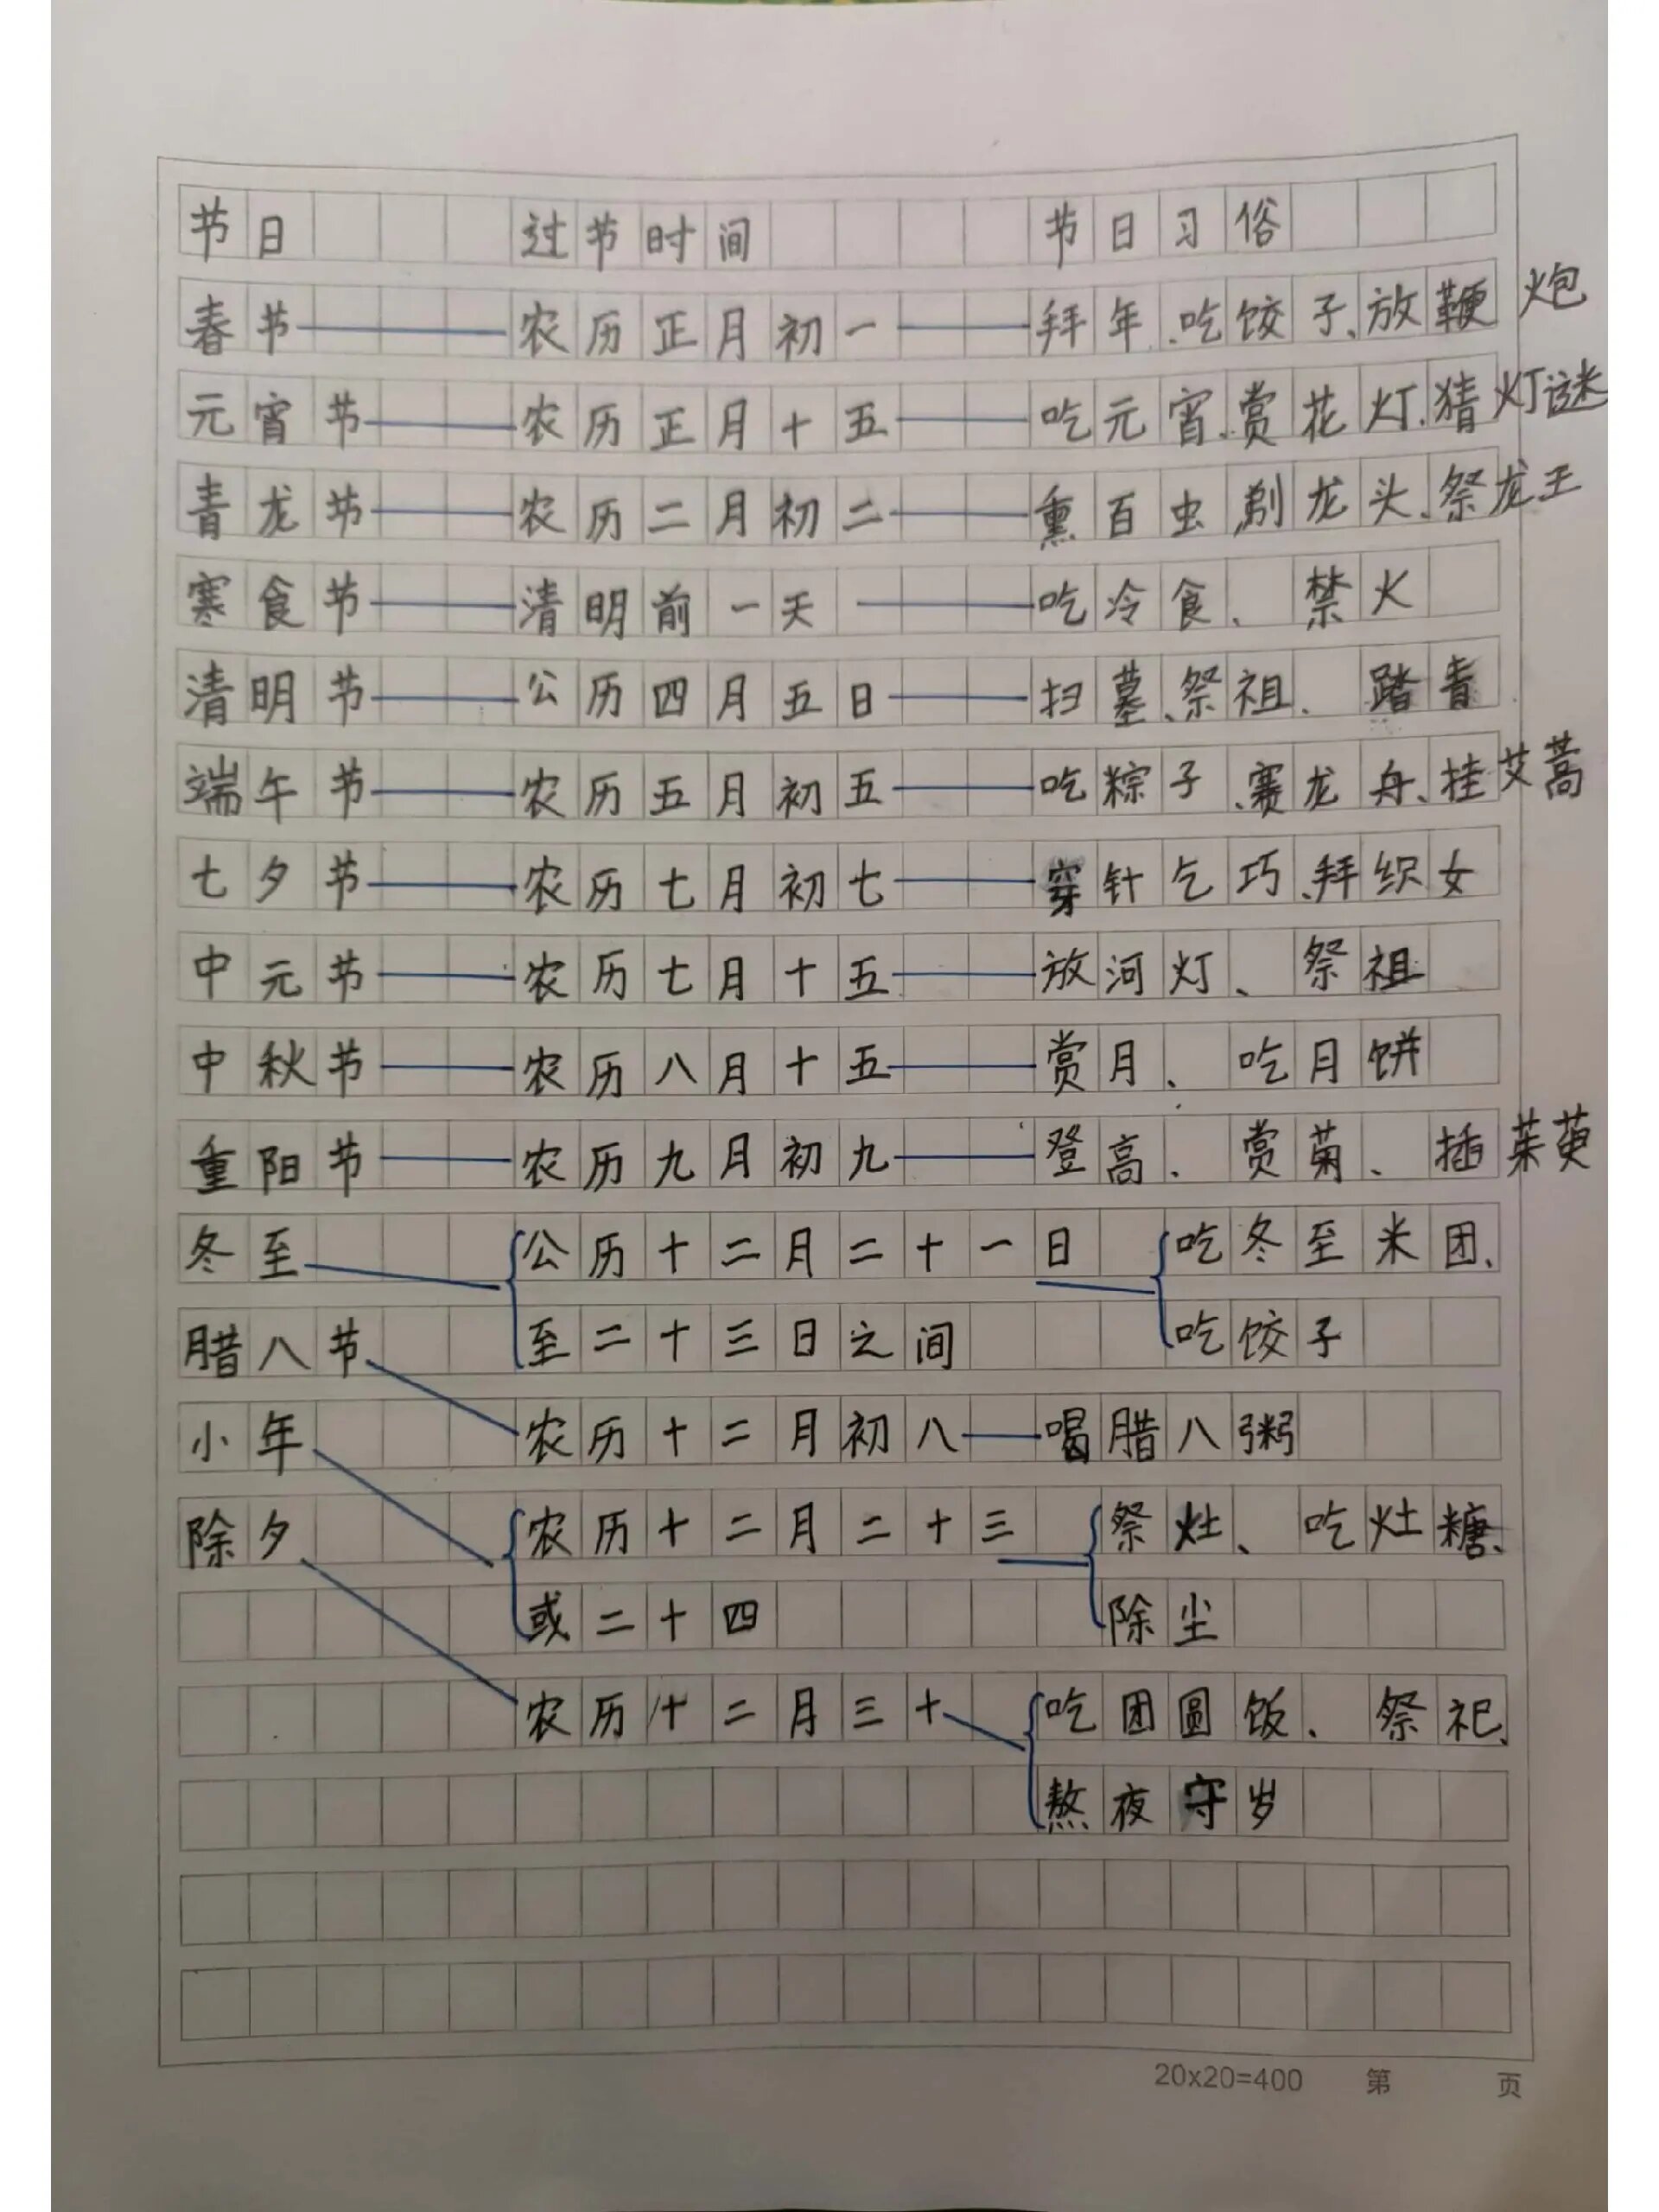 节日 过节时间 节日习俗
春节——农历正月初一——拜年、吃饺子、放鞭炮
元宵节——农历正月十五——吃元宵、赏花灯、猜灯谜
青龙节——农历二月初二——熏百虫、剃龙头、祭龙王
寒食节——清明前一天——吃冷食、禁火
清明节——公历四月五日——扫墓、祭祖、踏青
端午节——农历五月初五——吃粽子、赛龙舟、挂艾蒿
七夕节——农历七月初七——穿针乞巧、拜织女
中元节——农历七月十五——放河灯、祭祖
中秋节——农历八月十五——赏月、吃月饼
重阳节——农历九月初九——登高、赏菊、插茱萸
冬至 公历十二月二十一日 吃冬至米团、
腊八节 至二十三日之间 吃饺子
小年 农历十二月初八——喝腊八粥
除夕 农历十二月二十三 祭灶、吃灶糖、
或二十四 除尘
农历十二月三十 吃团圆饭、祭祀、
熬夜守岁
20x20=400 第 页